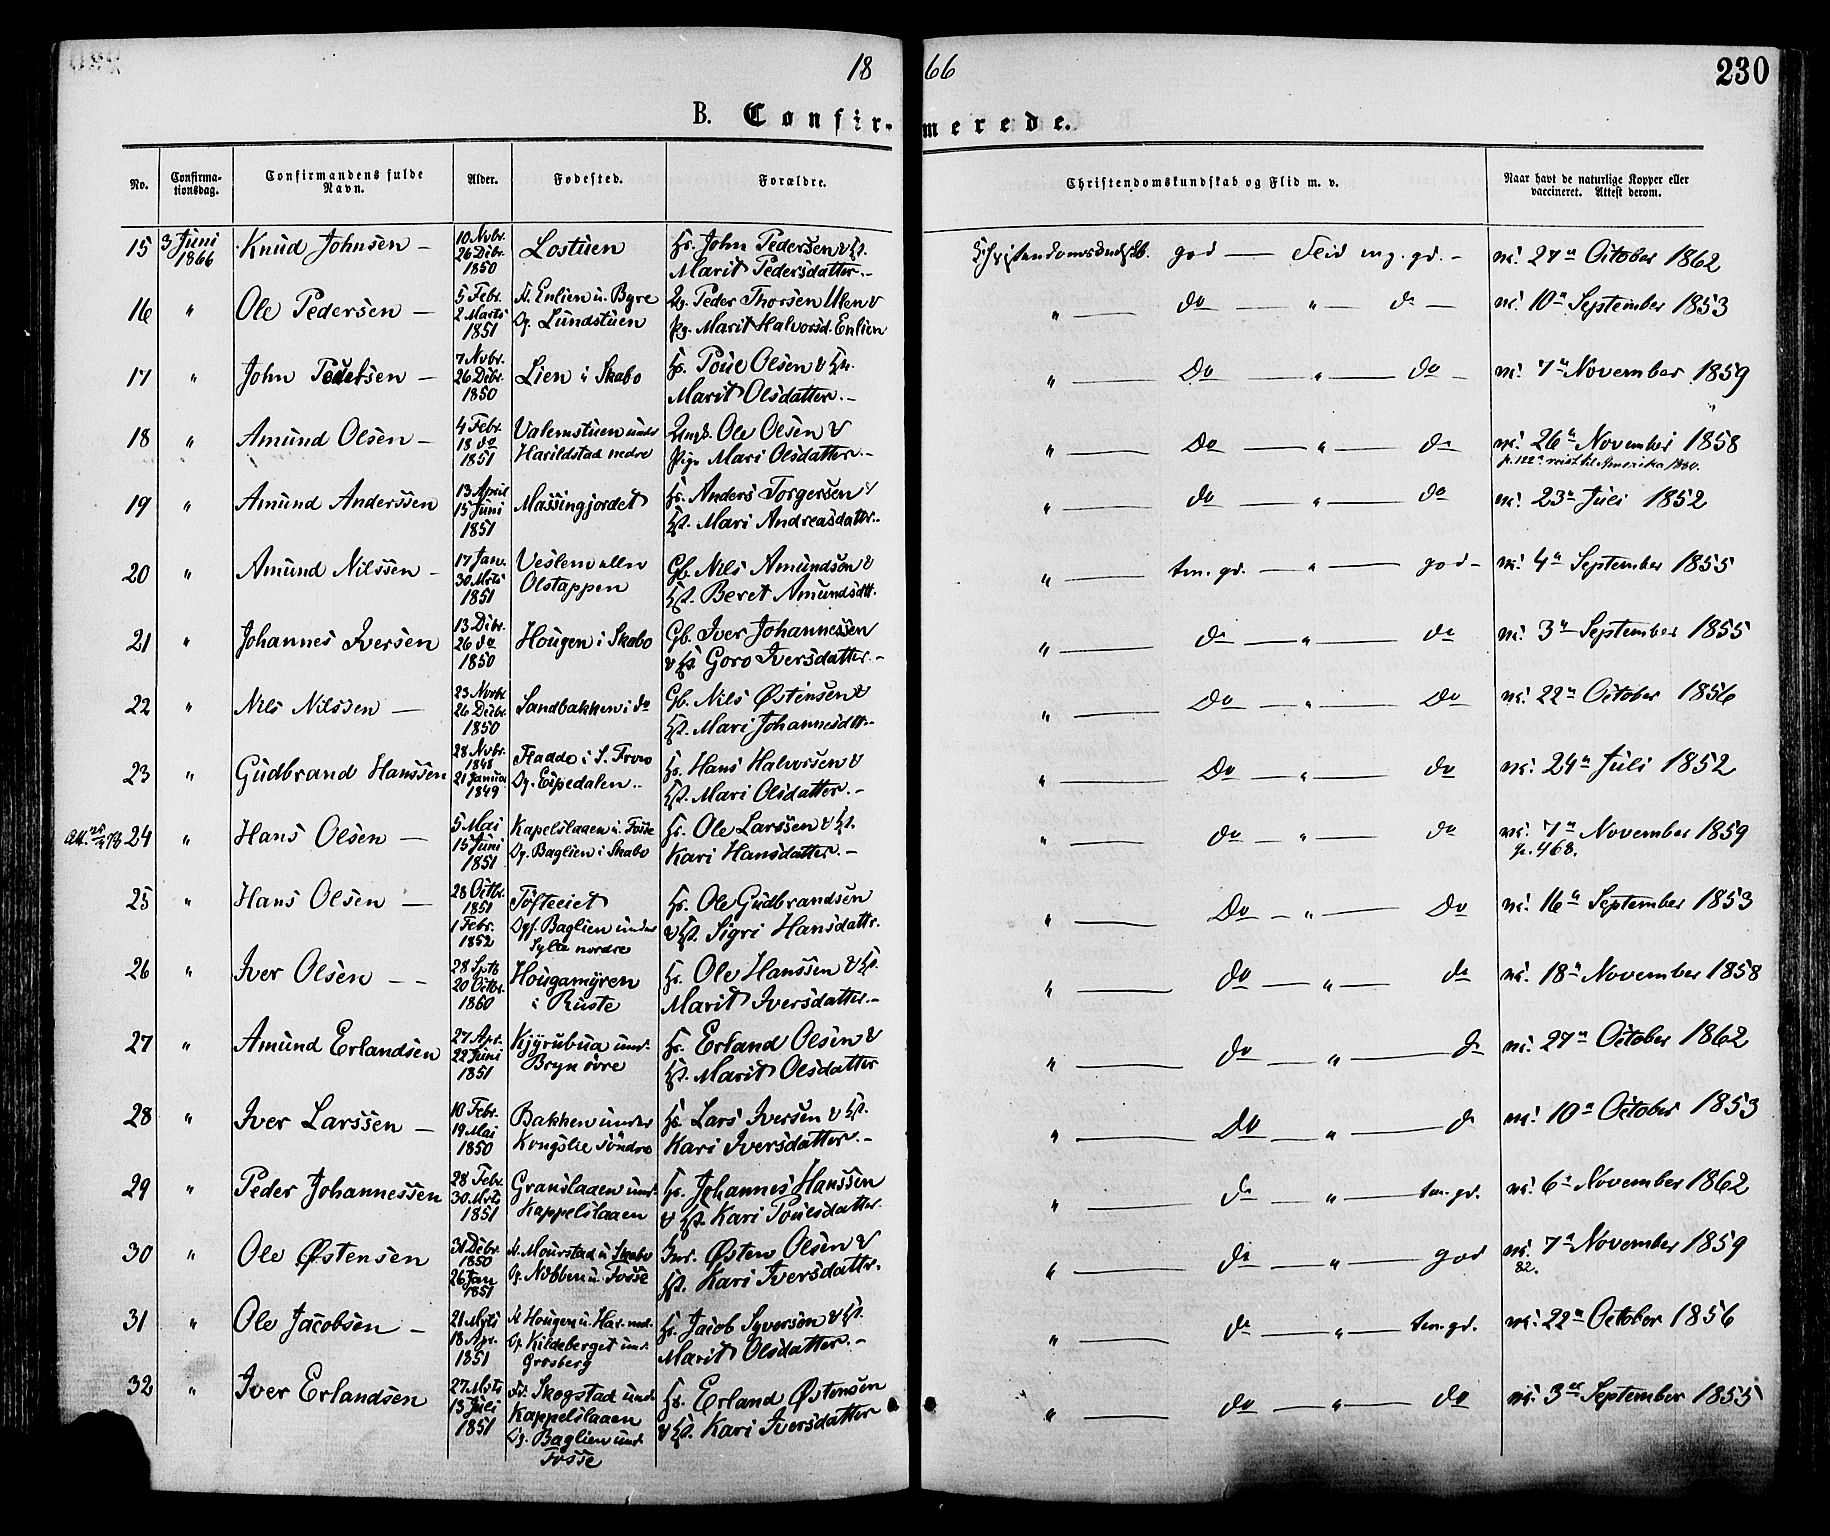 18 66
230
B. Confir- merede.
No. Confirma-tionsdag. Confirmandens fulde Navn. Alder. Fødested. Forældre. Christendomskundskab og Flid m. v. Naar havt de naturlige Kopper eller vaccineret. Attest derom.
15 3 Juni 1866 Knud Johnsen — 10 Nvbr. 26 Dcbr. 1850 Lostuen Hs. John Pedersen & Hst. Marit Pedersdatter.- god — Flid mg. gd. - 27de October 1862
16 " Ole Pedersen — 5 Febr. 2 Marts 1851 F. Enlien u. Byre Dg. Lundstuen Ug. Peder Thorsen Ulen & Pg. Marit Halvorsd. Enlien " — do — " — do — 10de September 1853
17 " John Poulsen — 7 Nvbr. 26 Dcbr. 1850 Lien i Skabo Hs. Poul Olsen & Hst. Marit Olsdatter.- " — Do — " — do - 7de November 1859
18 " Amund Olsen - 4 Febr. 18 do 1851 Valemstuen under Harildstad nedre Ungk. Ole Olsen & Pige Mari Olsdatter.- " — Do — " — do 26de November 1858
19 " Amund Anderssen 13 April 15 Juni 1851 Massingjordet Hs. Anders Torgersen & Hst. Mari Andreasdatter. " — do — " — do 23de Juli 1852
20 " Amund Nilssen - 17 Jan. 30 Mrts 1851 Olstappen Gb. Nils Amundsøn & Hst. Beret Amundsdtt. " — tm. gd. — " — god - 4de September 1855
21 " Johannes Iversen 13 Dcbr. 26 do 1850 Hougen i Skabo Gb. Iver Johannessen & Hst. Goro Iversdatter.- " — do — " — do 3de September 1855
22 " Nils Nilssen — 23 Nvbr. 26 Dcbr. 1850 Sandbakken i do Gb. Nils Østensen & Hst. Mari Johannesdtt.- " — Do — " — Do 22de October 1856
23 " Gudbrand Hanssen 28 Nvbr. 1848 21 Januar 1849 Fladdo i S. Fron Dg. Espedalen.. Hs. Hans Halvorsen & Hst. Mari Olsdatter.- " — Do — " — do 24de Juli 1852
24 " Hans Olsen — 5 Mai 15 Juni 1851 Kapelslaaen u. Fosse Dg. Baglien i Skabo Hs. Ole Larssen & Hst. Kari Hansdatter.- " — do — " — do 7de November 1859 p. 468.
25 " Hans Olsen — 28 Octbr. 1851 1 Febr. 1852 Tofteeiet Baglien under Sylte nordre Hs. Ole Gudbrandsen & Hst. Sigri Hansdattr. " — Do — " — Do 16de September 1853
26 " Iver Olsen - - 28 Sptb 20 Octbr. 1860 Hougamyren i Ruste Hs. Ole Hanssen & Hst. Marit Iversdatter.- " — do — " — do 18de November 1858
27 " Amund Erlandsen 27 Apr. 22 Juni 1851 Kjyrubua und. Bryn øvre Hs. Erland Olsen & Hst. Marit Olsdatter " — do — " — do 27de October 1862
28 " Iver Larssen — 10 Febr. 19 Mai 1850 Bakken under Kongslie søndre Hs. Lars Iversen & Hst. Kari Iversdatter.- " — Do — " — do 10de October 1853
29 " Peder Johannessen 28 Febr. 30 Mrts 1851 Granslaaen und. Kappelslaaen Hs. Johannes Hanssen & Hst. Kari Poulsdatter. " — do — " — tm. gd. 6de November 1862
30 " Ole Østensen 31 Dcbr. 1850 26 Jan 1851 F. Mourstad u. Skabo Dg. Nobben u. Fosse Inr. Østen Olsen & Hst. Kari Iversdatter. " — do — " — god 7de November 1859 82.
31 " Ole Jacobsen — 21 Mrts 18 Apr. 1851 F. Hougen u. Har. ned. Dg. Kildeberget und. Grosberg Hs. Jacob Syversen & Hst. Marit Olsdatter.- " — do — " — tm. gd. 22de October 1856
32 " Iver Erlandsen 27 Mrts 13 Juli 1851 F. Skogstad und. Kappelslaaen Dg. Baglien und. Fosse Hs. Erland Østensen & Hst. Kari Iversdatter " — do — " — do 3de September 1855